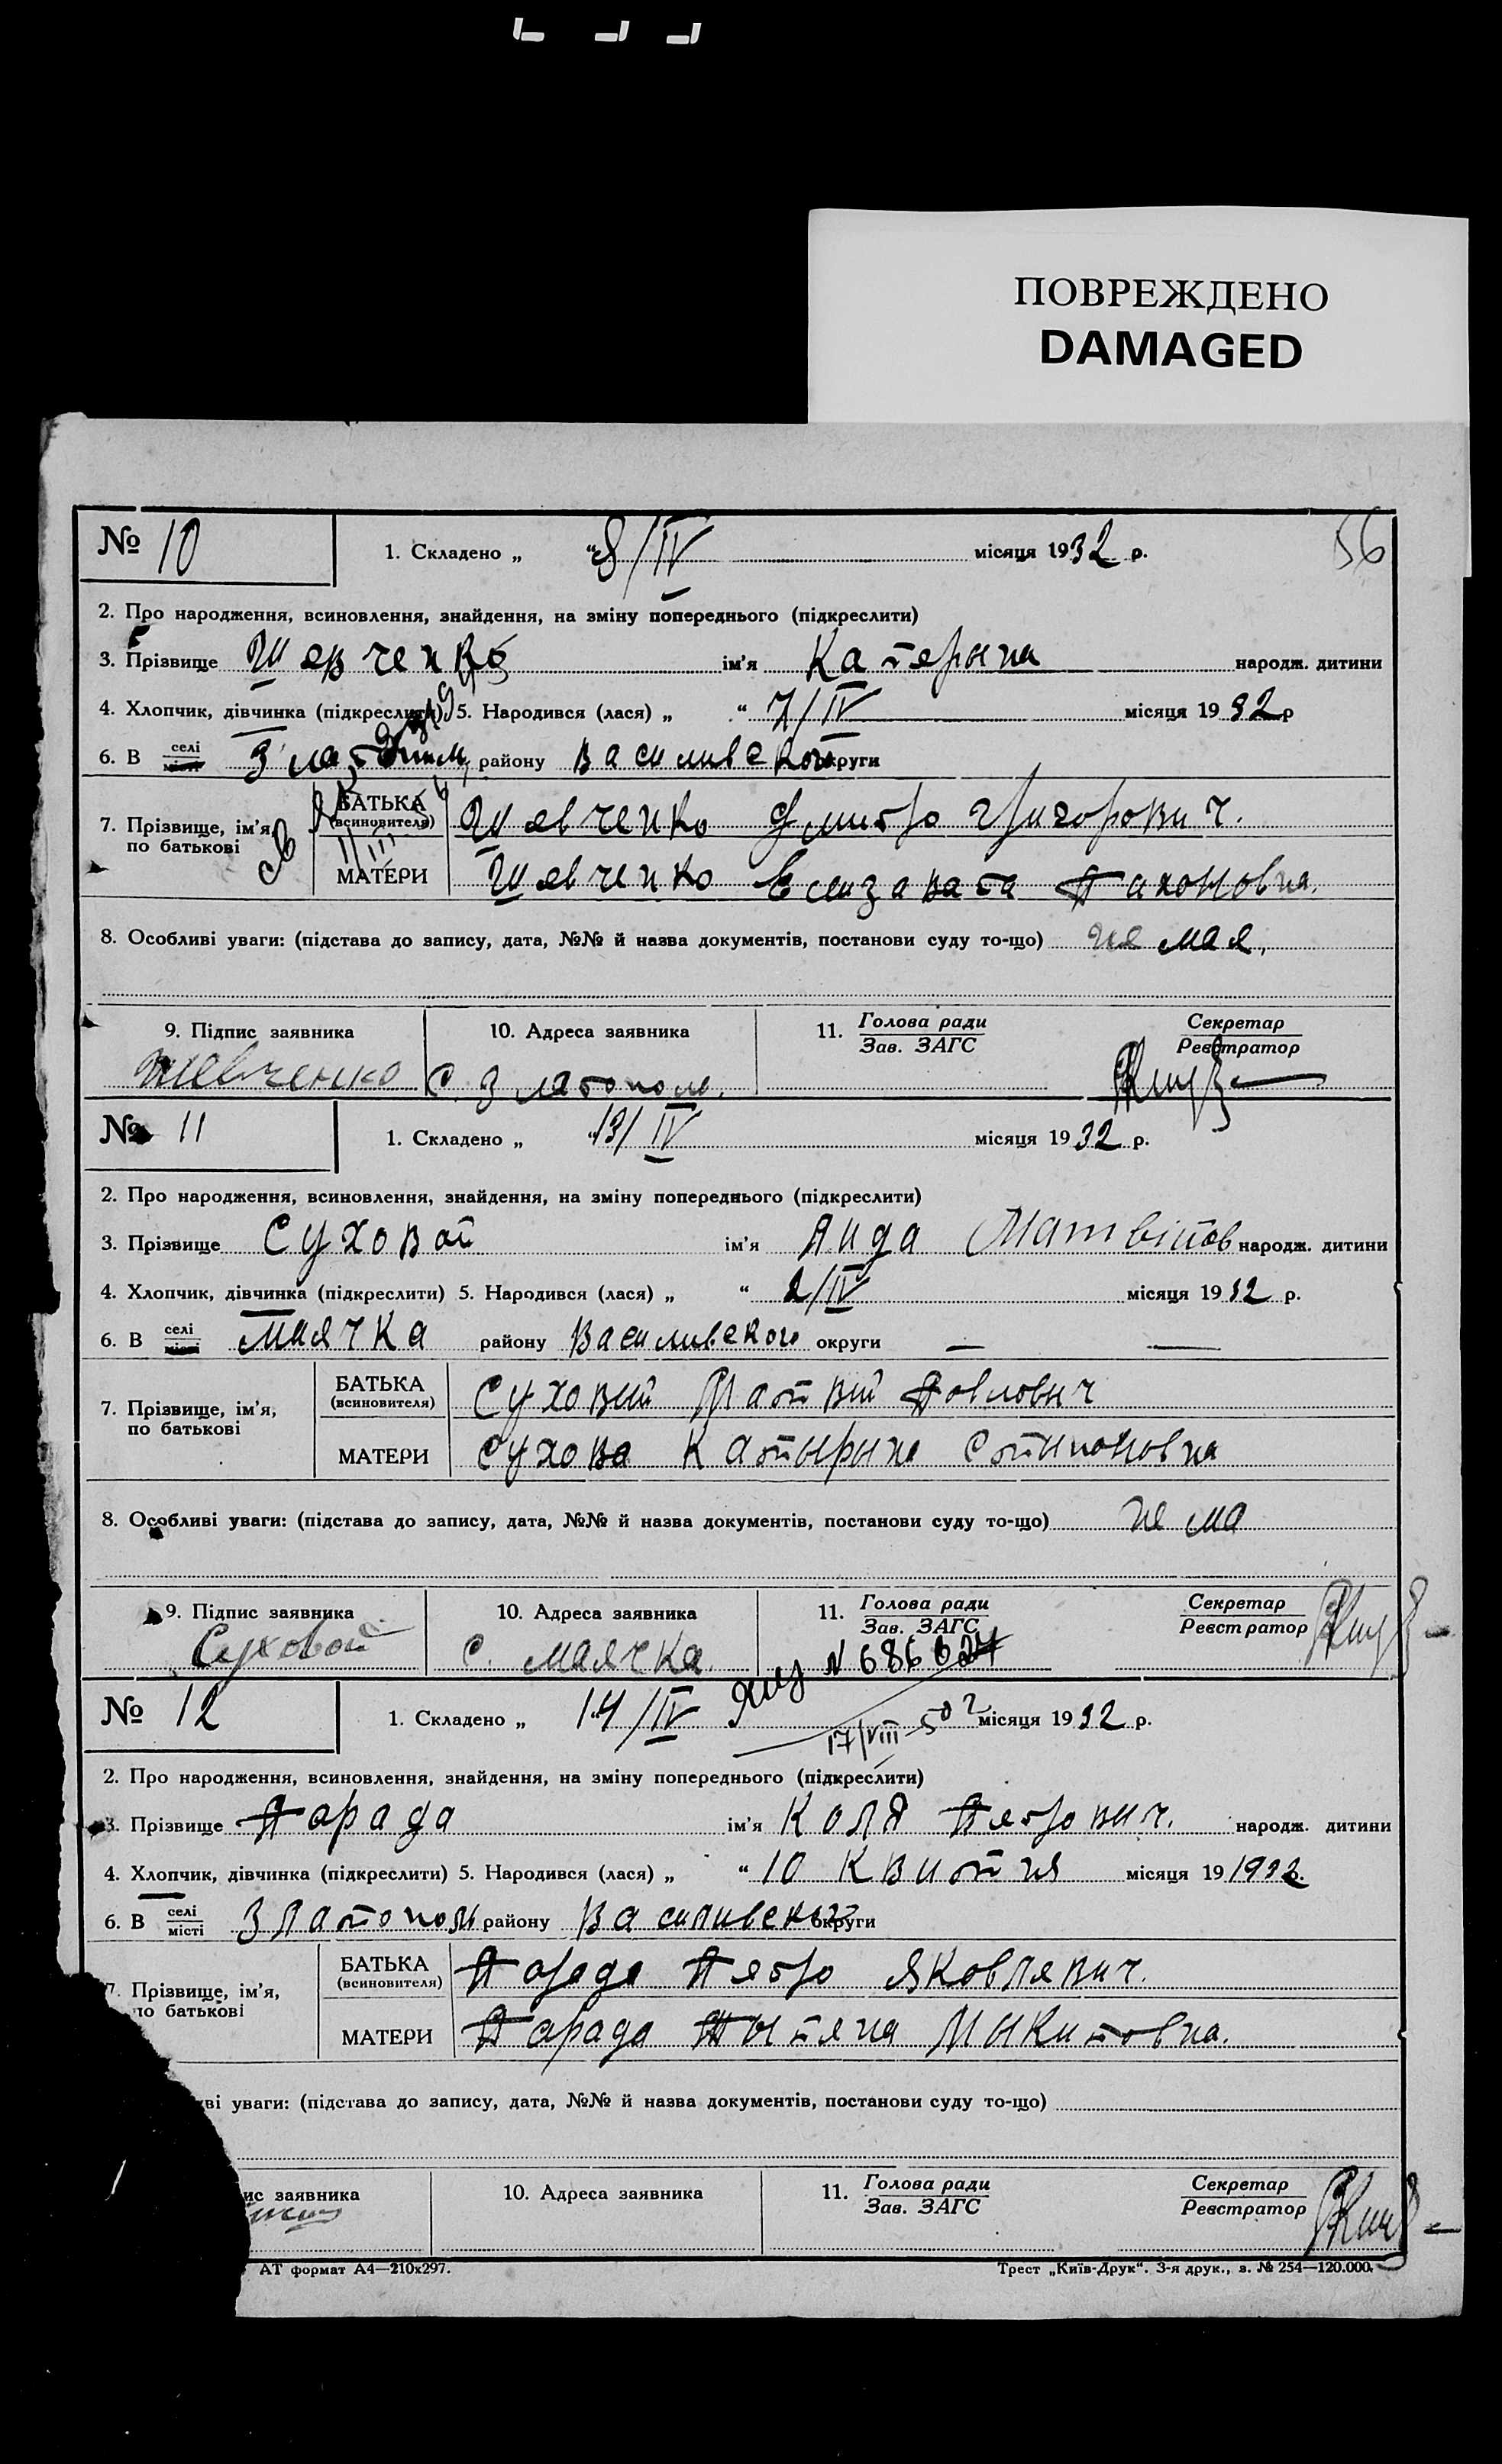 ПОВРЕЖДЕНО
DAMAGED
№ 10 1. Складено „ “ 8/IV місяця 1932 р. 56
2. Про народження, всиновлення, знайдення, на зміну попереднього (підкреслити)
3. Прізвище Шевченко ім'я Катерына народж. дитини
4. Хлопчик, дівчинка (підкреслити) 5. Народився (лася) „ “ 7/IV місяця 1932 р
6. В селі місті району Василивского округи
7. Прізвище, ім'я, по батькові
БАТЬКА (всиновителя) Шевченко Дмитро Григорович.
МАТЕРИ Шевченко Елизавета Пахоновна.
8. Особливі уваги: (підстава до запису, дата, №№ й назва документів, постанови суду то-що) не мае.
9. Підпис заявника 10. Адреса заявника 11. Голова ради Зав. ЗАГС Секретар Реєстратор
Шевченко с. Златополь.
№ 11 1. Складено „ “ 13/IV місяця 1932 р.
2. Про народження, всиновлення, знайдення, на зміну попереднього (підкреслити)
3. Прізвище Суховой ім'я Аида народж. дитини
4. Хлопчик, дівчинка (підкреслити) 5. Народився (лася) „ “ 2/IV місяця 1932 р.
6. В селі місті Маячка району Василивского округи — —
7. Прізвище, ім'я, по батькові
БАТЬКА (всиновителя) Суховий Матвий Повлович
МАТЕРИ Сухова Катырына Стыпоновна
8. Особливі уваги: (підстава до запису, дата, №№ й назва документів, постанови суду то-що) не ма
9. Підпис заявника 10. Адреса заявника 11. Голова ради Зав. ЗАГС Секретар Реєстратор
Суховой с. Маячка.
№ 12 1. Складено „ 14/IV 17/VIII-50 г місяця 1932 р.
2. Про народження, всиновлення, знайдення, на зміну попереднього (підкреслити)
3. Прізвище Парада ім'я Коля Петрович. народж. дитини
4. Хлопчик, дівчинка (підкреслити) 5. Народився (лася) „ “ 10 Квитня місяця 19 1932.
6. В селі місті Златополи району Василивского округи
7. Прізвище, ім'я, по батькові
БАТЬКА (всиновителя) Парада Петро Яковлевич.
МАТЕРИ Парада Тытяна Мыкитовна.
ві уваги: (підстава до запису, дата, №№ й назва документів, постанови суду то-що)
ис заявника 10. Адреса заявника 11. Голова ради Зав. ЗАГС Секретар Реєстратор
АТ формат А4—210х297. Трест „Київ-Друк“. 3-я друк., з. № 254—120.000.